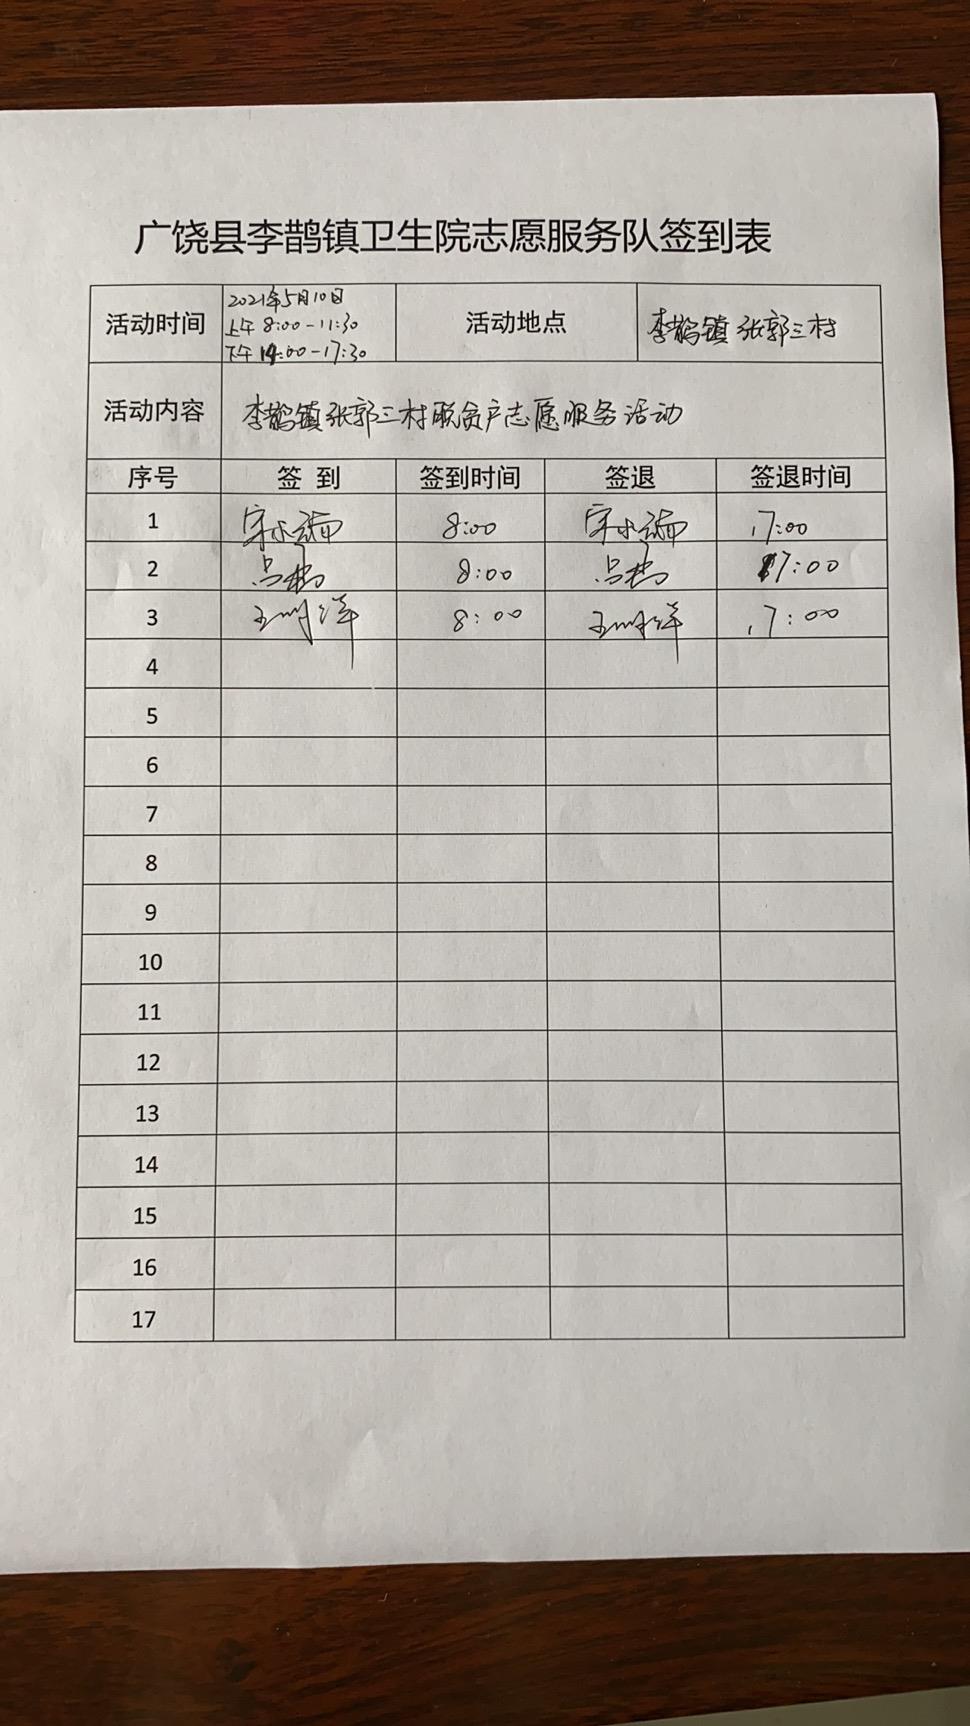 广饶县李鹊镇卫生院志愿服务队签到表
活动时间 2021年5月10日 上午 8:00-11:30 下午 14:00-17:30 活动地点 李鹊镇张郭三村
活动内容 李鹊镇张郭三村脱贫户志愿服务活动
序号 签到 签到时间 签退 签退时间
1 8:00 17:00
2 8:00 17:00
3 8:00 17:00
4
5
6
7
8
9
10
11
12
13
14
15
16
17